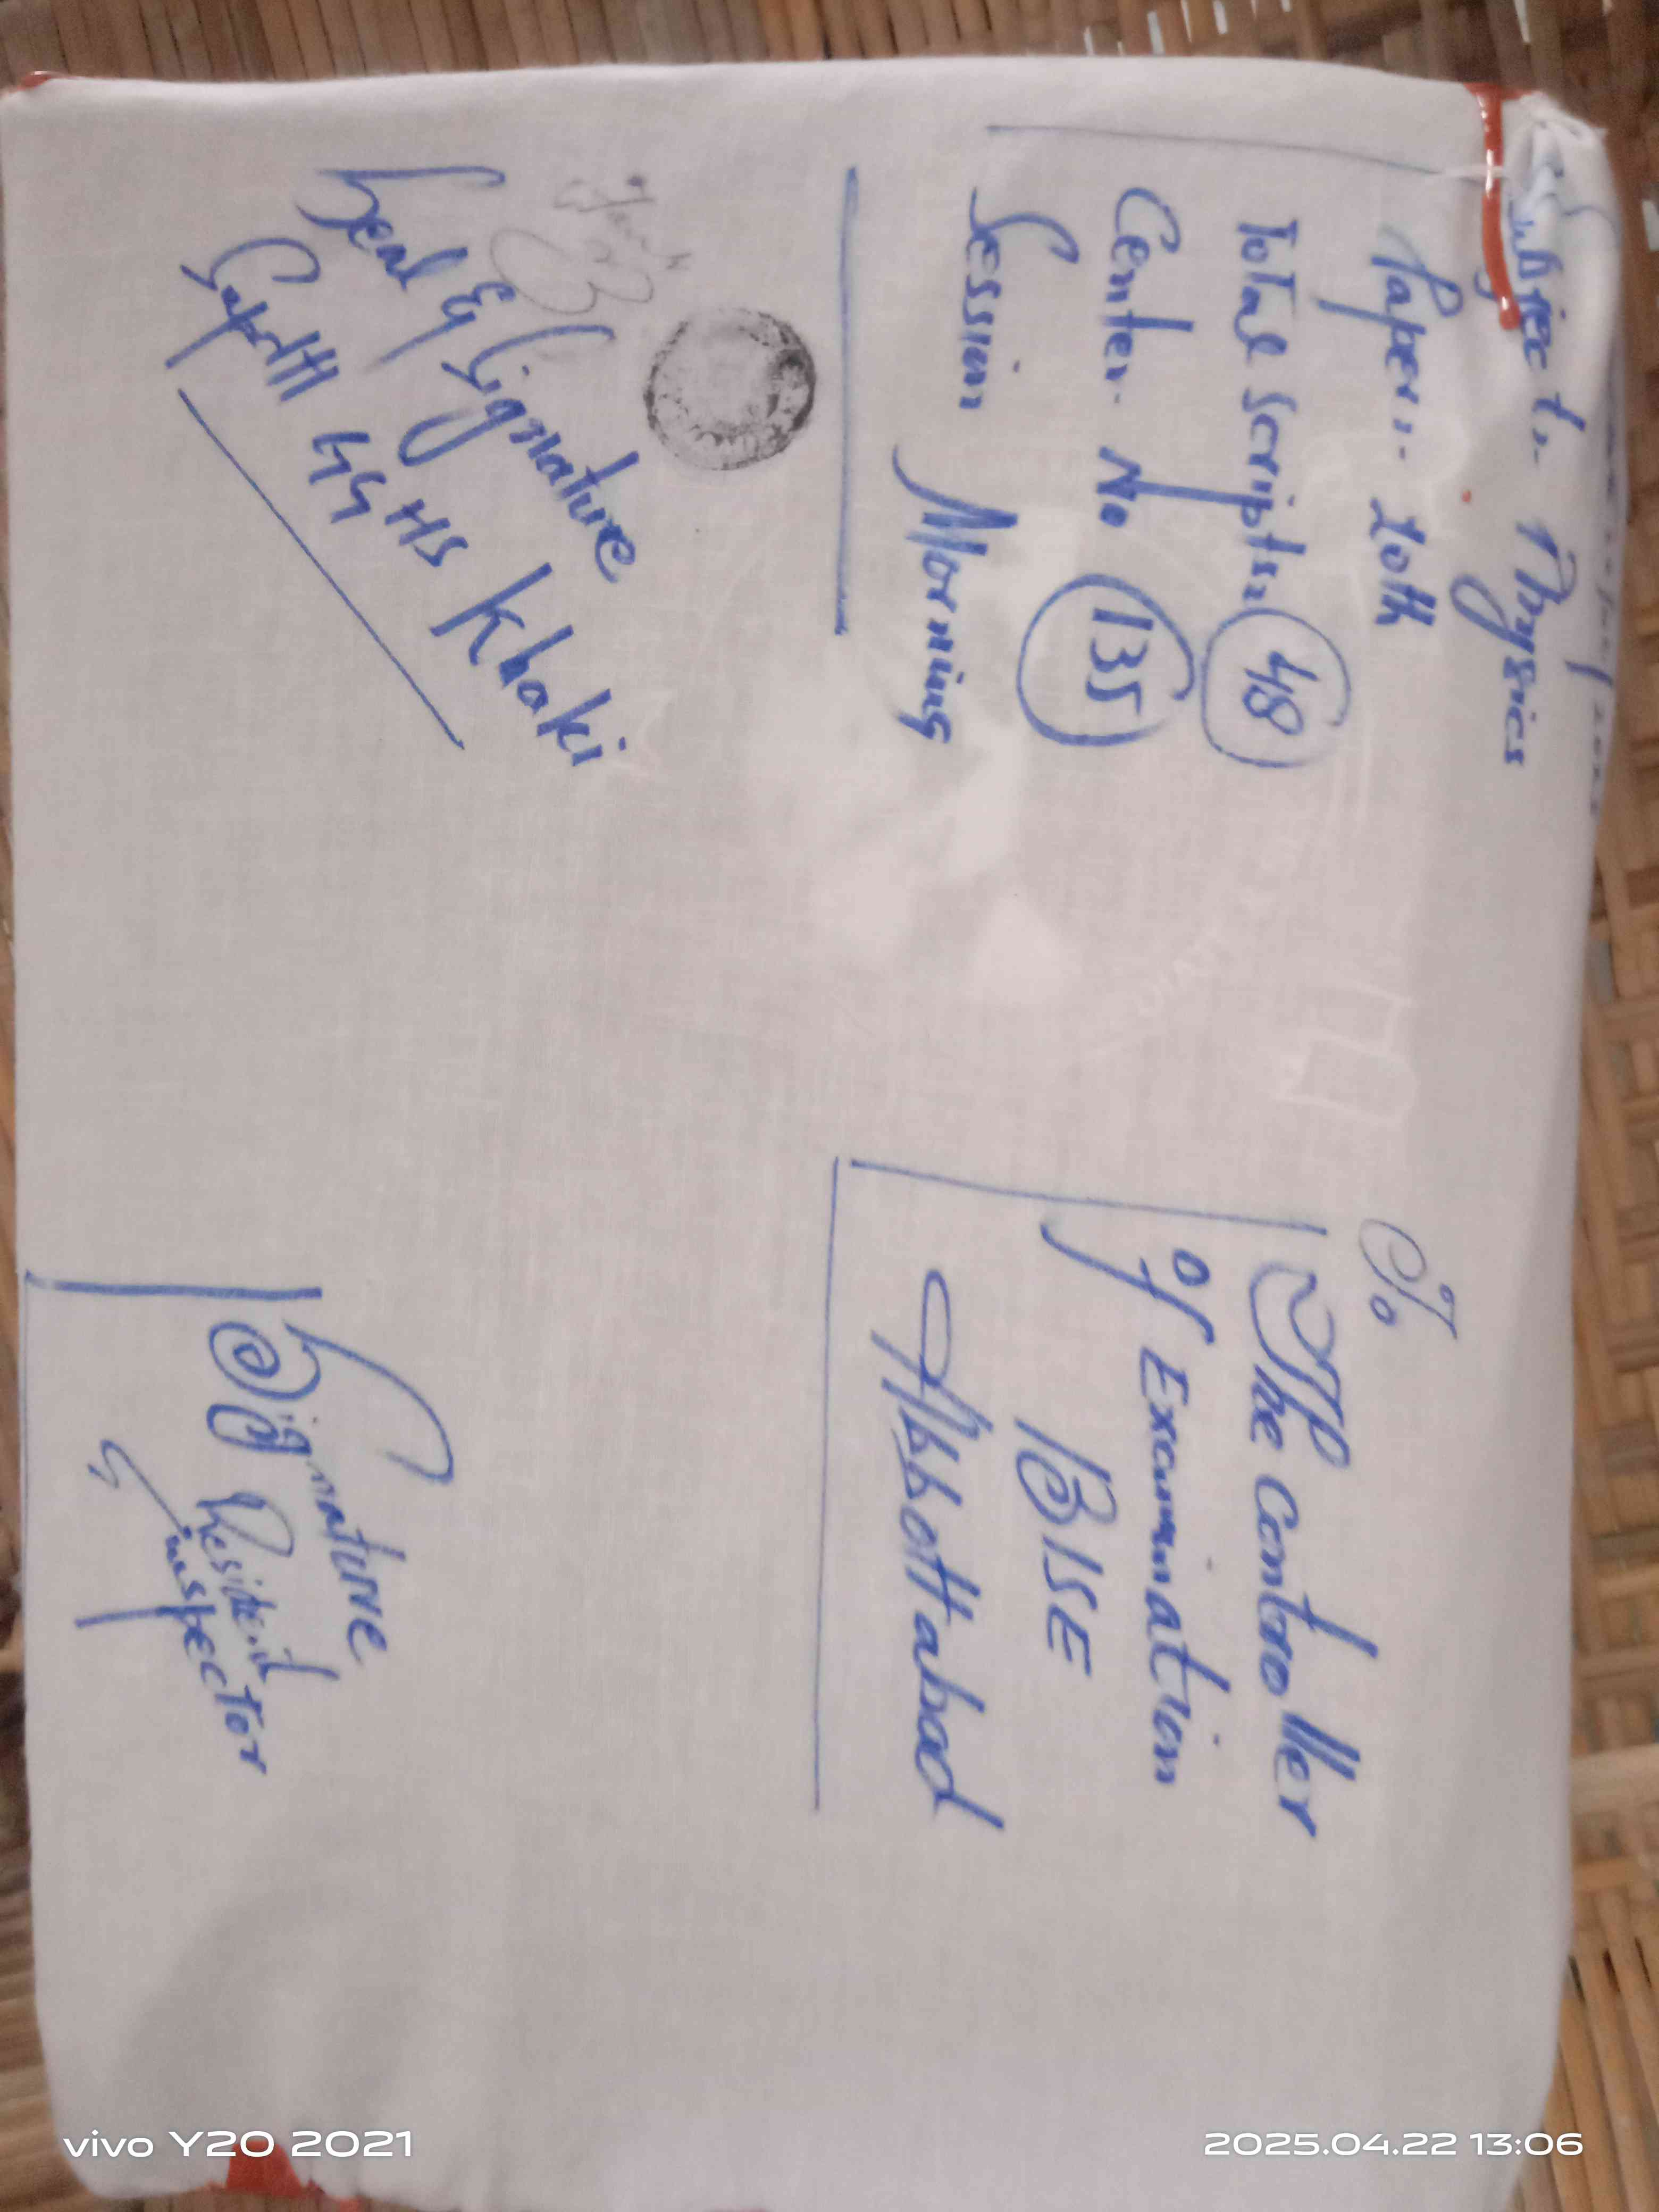 Subject:- Physics
Paper:- 10th
Total Scripts:- 48
Center No 135
Session Morning
Seal & Signature
Supdtt GGHS Khaki
To
The Controller
of Examination
BISE
Abbottabad
Signature
Resident
inspector
vivo Y20 2021
2025.04.22 13:06